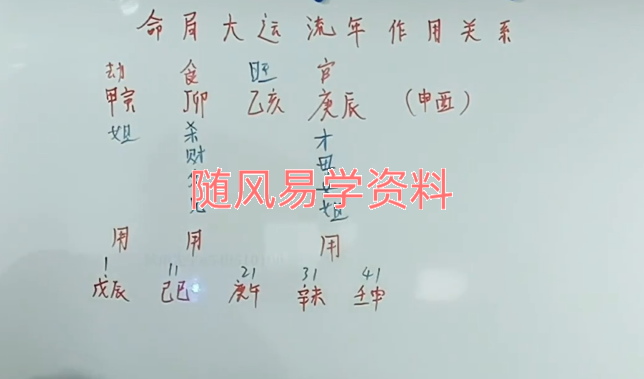 命局大运流年作用关系
劫 食 旺 官
甲寅 丁卯 乙亥 庚辰 (申酉)
杀 才
财
随风易学资料
用 用 用
1 11 21 31 41
戊辰 己巳 庚午 辛未 壬申